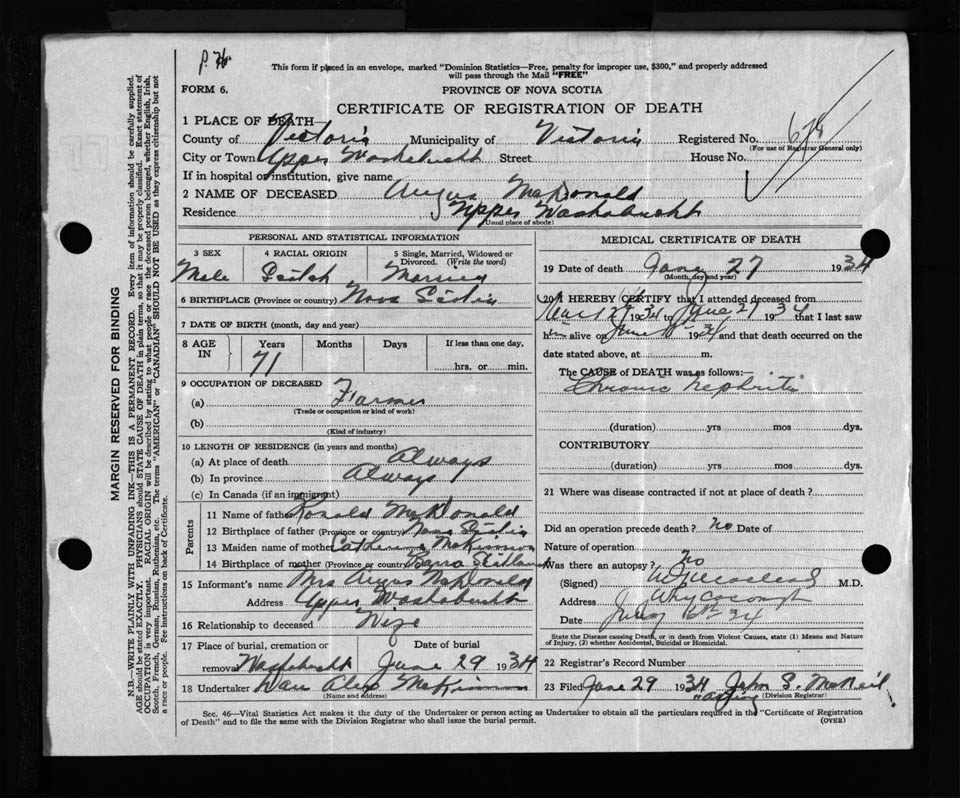 This form if placed in an envelope, marked "Dominion Statistics—Free, penalty for improper use, $300," and properly addressed
will pass through the Mail "FREE"
FORM 6.
PROVINCE OF NOVA SCOTIA
CERTIFICATE OF REGISTRATION OF DEATH
1 PLACE OF DEATH—
County of Victoria Municipality of Victoria Registered No. 678
(For use of Registrar General only)
City or Town Upper Washabuckt Street House No.
If in hospital or institution, give name
2 NAME OF DECEASED Angus McDonald
Residence Upper Washabuckt
(Usual place of abode)
PERSONAL AND STATISTICAL INFORMATION
3 SEX 4 RACIAL ORIGIN 5 Single, Married, Widowed or Divorced. (Write the word)
Male Scotch Married
6 BIRTHPLACE (Province or country) Nova Scotia
7 DATE OF BIRTH (month, day and year)
8 AGE IN Years Months Days If less than one day,
71 hrs. or min.
9 OCCUPATION OF DECEASED
(a) Farmer
(Trade or occupation or kind of work)
(b)
(Kind of industry)
10 LENGTH OF RESIDENCE (in years and months)
(a) At place of death Always
(b) In province Always
(c) In Canada (if an immigrant)
Parents
11 Name of father Ronald McDonald
12 Birthplace of father (Province or country) Nova Scotia
13 Maiden name of mother Catherine McKinnon
14 Birthplace of mother (Province or country) Barra Scotland
15 Informant's name Mrs Angus McDonald
Address Upper Washabuckt
16 Relationship to deceased Wife
17 Place of burial, cremation or Date of burial
removal Washabuckt June 29 1934
18 Undertaker Dan Alex McKinnon
(Name and address)
MEDICAL CERTIFICATE OF DEATH
19 Date of death 27 1934
(Month, day and year)
20 I HEREBY CERTIFY that I attended deceased from
1934 to June 27 1934 that I last saw
him alive on June 1934 and that death occurred on the
date stated above, at m.
The CAUSE of DEATH was as follows:—
Chronic Nephritis
(duration) yrs mos dys.
CONTRIBUTORY
(duration) yrs mos dys.
21 Where was disease contracted if not at place of death?
Did an operation precede death? no Date of
Nature of operation
Was there an autopsy? no
(Signed) M.D.
Address Whycocomagh
Date July 6th 34
State the Disease causing Death, or in death from Violent Causes, state (1) Means and Nature
of Injury, (2) whether Accidental, Suicidal or Homicidal.
22 Registrar's Record Number
23 Filed June 29 1934 John S. McNeil
acting (Division Registrar)
Sec. 46—Vital Statistics Act makes it the duty of the Undertaker or person acting as Undertaker to obtain all the particulars required in the "Certificate of Registration
of Death" and to file the same with the Division Registrar who shall issue the burial permit.
(OVER)
MARGIN RESERVED FOR BINDING
N.B.—WRITE PLAINLY WITH UNFADING INK—THIS IS A PERMANENT RECORD. Every item of information should be carefully supplied.
AGE should be stated EXACTLY. PHYSICIANS should STATE CAUSE OF DEATH in plain terms, so that it may be properly classified. Exact statement of
OCCUPATION is very important. RACIAL ORIGIN will be described by stating to what people or race the deceased person belonged, whether English, Irish,
Scotch, French, German, Russian, Ruthenian, etc. The terms "AMERICAN" or "CANADIAN" SHOULD NOT BE USED as they express citizenship but not
a race or people. See instructions on back of Certificate.